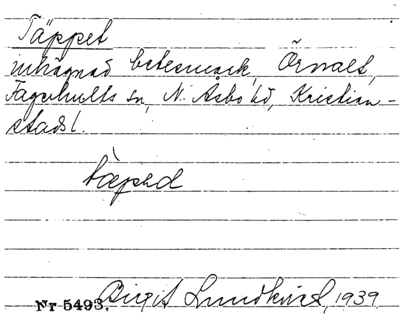 Täppet
inhägnad betesmark, Örnalt,
Fagerhults sn, N. Åsbo hd, Kristian-
stads l.
Nr 5493. Birgit Lundkvist, 1939